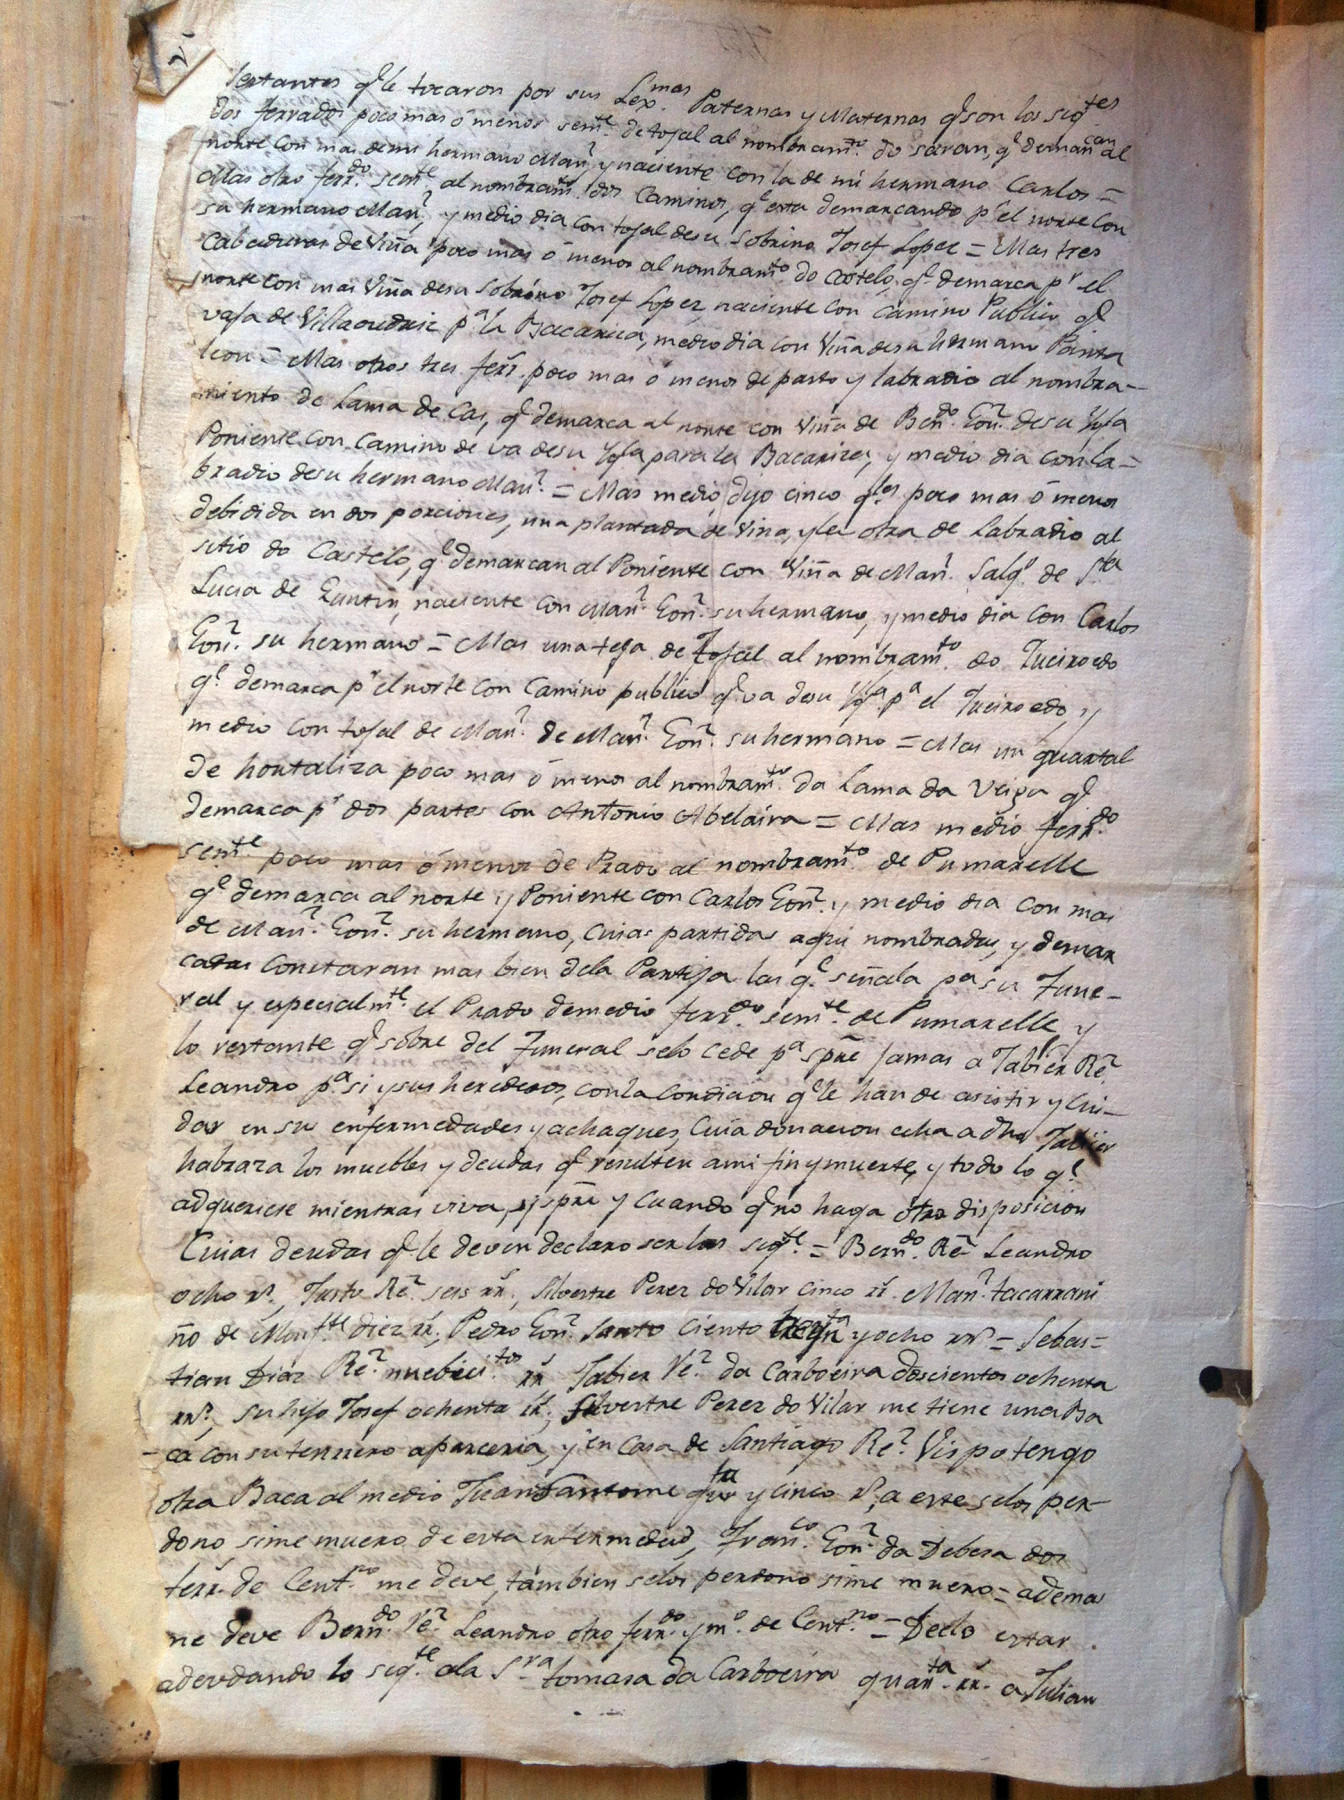 restantes q.e le tocaron por sus Lex.mas Paternas y Maternas q.e son los sig.tes
dos ferrados poco mas ó menos sem.te de tojal al nombram.to do saran, q.e demarcan al
norte con mas demi hermano Man.l y naciente con la de mi hermano Carlos =
Mas otro ferr.do sem.te al nombram.to dos Caminos, q.e esta demarcando p.r el norte con
su hermano Man.l, y medio dia con tojal desu Sobrino Josef Lopez = Mas tres
Cabaduras de Viña poco mas ó menos al nombram.to do Castelo, q.e demarca p.r el
norte con mas Viña desu Sobrino Josef Lopez naciente con Camino Publico q.e
vaja de Villaoudriz p.a la Bacariza, medio dia con Viña desu hermano Panta
leon = Mas otros tres ferr.s poco mas ó menos de pasto y labradio al nombra-
miento de Lama de Cas, q.e demarca al norte con Viña de Bern.do Gon.z desu Ygla
Poniente con Camino de va desu Ygla para la Bacariza, y medio dia con la=
bradio desu hermano Man.l = Mas medio, dijo cinco q.les poco mas ó menos
debidida en dos porciones, una plantada de Viña, y la otra de Labradio al
sitio do Castelo, q.e demarcan al Poniente con Viña de Man.l Salg.o de S.ta
Lucia de Guntin, naciente con Man.l Gon.z su hermano, y medio dia con Carlos
Gon.z su hermano = Mas una tega de Tojal al nombram.to do Tueiroedo
q.e demarca p.r el norte con Camino publico q.e va desu Ygl.a p.a el Tueiroedo, y
medio con tojal de Man.l de Man.l Gon.z su hermano = Mas un quartal
de hortaliza poco mas ó menos al nombram.to da Lama da Veiga q.e
demarca p.r dos partes con Antonio Abelaira = Mas medio ferr.do
sem.te poco mas ó menos de Prado al nombram.to de Pumarelle
q.e demarca al norte y Poniente con Carlos Gon.z y medio dia con mas
de Man.l Gon.z su hermano, Cuias partidas aqui nombradas, y demar
cadas Constaran mas bien dela Partija las q.e señala p.a su Fune-
ral y especialm.te el Prado demedio ferr.do sem.te de Pumarelle y
lo restante q.e sobre del Funeral selo cede p.a spre jamas a Jabier R.e
Leandro p.a si y sus herederos, con la Condicion q.e le han de asistir y Cui-
dar en su enfermedades y achaques, Cuia donacion echa a dho Jabier
habraza los muebles y deudas q.e resulten ami fin y muerte, y todo lo q.e
adqueriese mientras viva, y spre y cuando q.e no haga otra disposicion
Cuias deudas q.e le deven declaro ser las sig.te = Bern.do R.e Leandro
ocho r.s, Justo R.e seis rr.s, Silvestre Perez do Vilar cinco rr.s Man.l tacarrani
ño de Monf.te diez rr.s, Pedro Gon.z Santo Ciento treynta y ocho rr.s = Sebas=
tian Diaz R.e nuebeci.tos rr.s Jabier Ve.z da Carboeira doscientos ochenta
rr.s, su hijo Josef ochenta rr.s, Silvestre Perez do Vilar me tiene una Ba
ca con su ternero aparceria, y en Casa de Santiago R.e Vispo tengo
otra Baca al medio Juan Santome q.ta y cinco r.s, a este selos per-
dono sime muero de esta enfermedad, Fran.co Gon.z da Debesa dos
ferr.s de Cent.no me deve, tambien selos perdono sime muero = ademas
me deve Bern.do Ve.z Leandro otro ferr.do y m.o de Cent.no = Declo estar
adeudando lo sig.te ala S.ra tomasa da Carboeira quar.ta rr.s a Julian